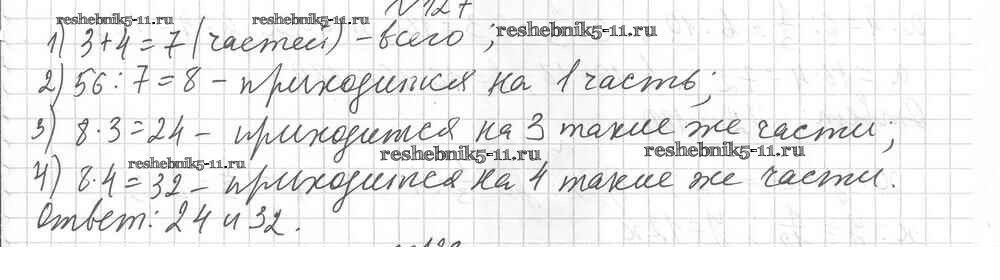 №127
reshebnik5-11.ru reshebnik5-11.ru
1) 3+4=7 (частей) – всего ; reshebnik5-11.ru
2) 56:7=8 – приходится на 1 часть;
3) 8·3=24 – приходится на 3 такие же части;
reshebnik5-11.ru reshebnik5-11.ru reshebnik5-11.ru
4) 8·4=32 – приходится на 4 такие же части.
Ответ: 24 и 32.